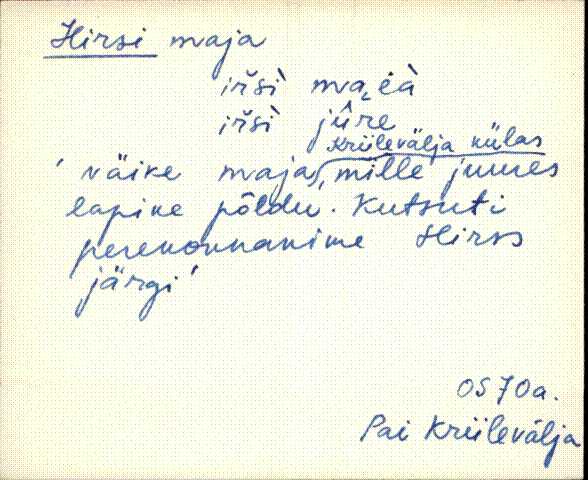 Hirsi maja
iršì ma̬i̯à
iršì jûre
Kriilevälja külas
'väike maja, mille juures
lapike põldu. Kutsuti
perekonnanime Hirss
järgi'
OS 70a.
Pai Kriilevälja